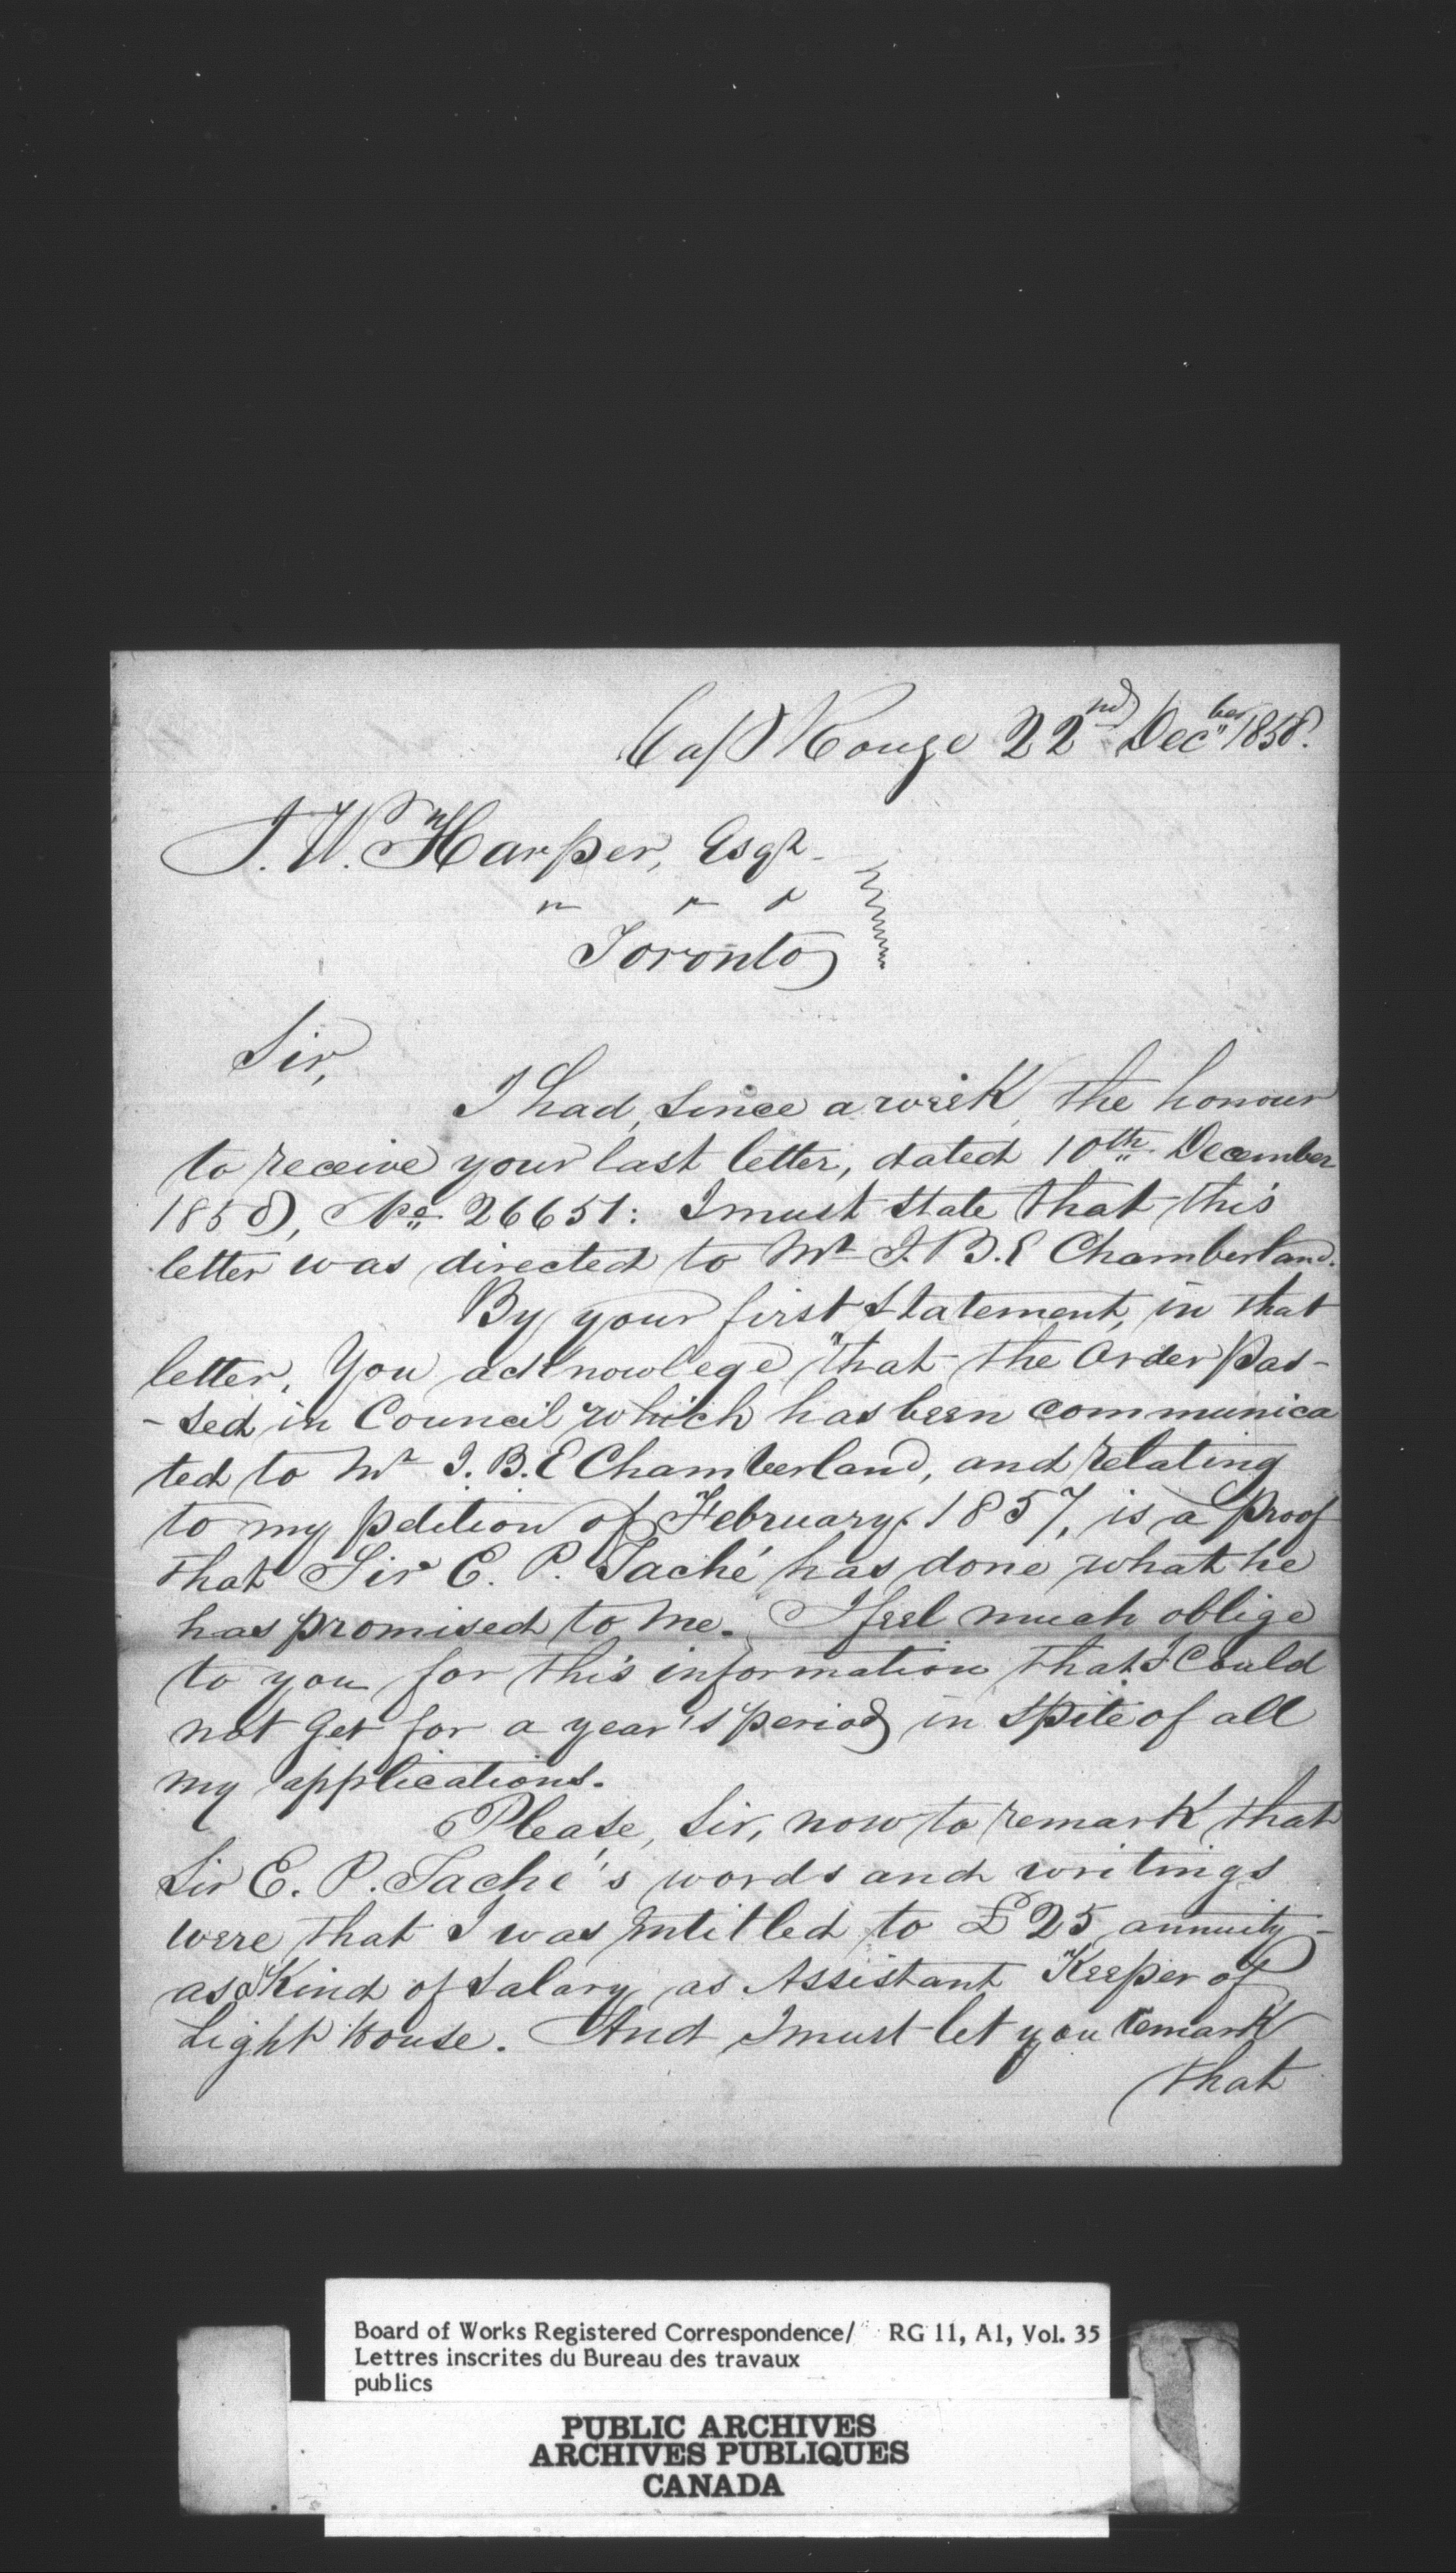 Cap Rouge 22nd Decber 1858.
J. W. Harper, Esqr.
" " "
Toronto
Sir,
I had, since a week, the honour
to receive your last letter, dated 10th December
1858, No. 26651: I must state that this
letter was directed to Mr J. B. E Chamberland.
By your first statement, in that
letter, You acknowlege "that the Order pas-
-sed in Council which has been communica
ted to Mr J. B. E Chamberland, and relating
to my petition of February 1857, is a proof
that Sir E. P. Taché has done what he
has promised to me." I feel much oblige
to you for this information that I Could
not Get for a year's period in spite of all
my applications.
Please, Sir, now to remark that
Sir E. P. Taché's words and writings
were that I was intitled to £25 annuity
as a Kind of salary as Assistant Keeper of
Light House. And I must let you remark
that
Board of Works Registered Correspondence/ RG 11, A1, Vol. 35
Lettres inscrites du Bureau des travaux
publics
PUBLIC ARCHIVES
ARCHIVES PUBLIQUES
CANADA